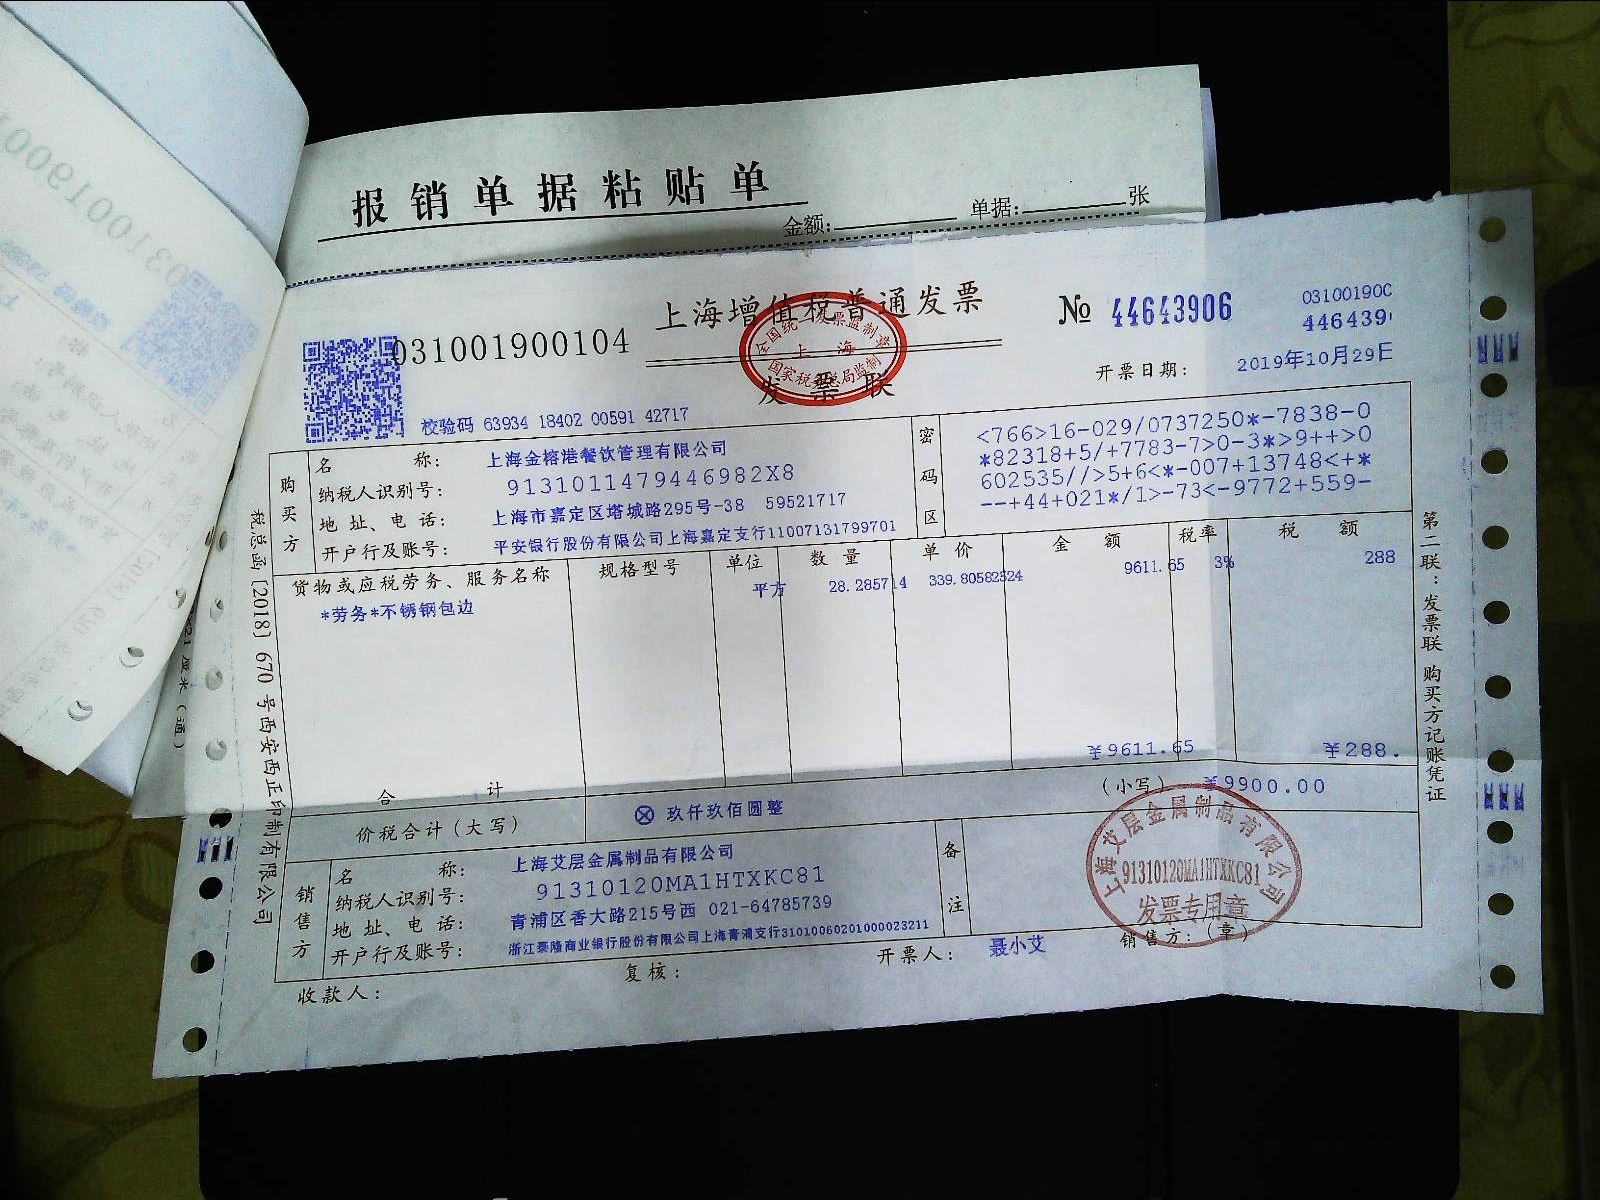 报销单据粘贴单
金额: 单据: 张
上海增值税普通发票
发票联
全国统一发票监制章
上海
国家税务总局监制
031001900104
№ 44643906
03100190
446439
校验码 63934 18402 00591 42717
开票日期: 2019年10月29日
购买方
名 称: 上海金榕港餐饮管理有限公司
纳税人识别号: 9131011479446982X8
地 址、电 话: 上海市嘉定区塔城路295号-38 59521717
开户行及账号: 平安银行股份有限公司上海嘉定支行11007131799701
密码区
<766>16-029/0737250*-7838-0
*82318+5/+7783-7>0-3*>9++>0
602535//>5+6<*-007+13748<+*
--+44+021*/1>-73<-9772+559-
货物或应税劳务、服务名称 规格型号 单位 数量 单价 金额 税率 税额
*劳务*不锈钢包边 平方 28.285714 339.80582524 9611.65 3% 288
合 计 ¥9611.65 ¥288.
价税合计(大写) ⊗ 玖仟玖佰圆整 (小写) ¥9900.00
销售方
名 称: 上海艾层金属制品有限公司
纳税人识别号: 91310120MA1HTXKC81
地 址、电 话: 青浦区香大路215号西 021-64785739
开户行及账号: 浙江泰隆商业银行股份有限公司上海青浦支行31010060201000023211
备注
上海艾层金属制品有限公司
91310120MA1HTXKC81
发票专用章
收款人: 复核: 开票人: 聂小艾 销售方:(章)
税总函[2018]670号西安西正印制有限公司
第二联:发票联 购买方记账凭证
21厘米(通)